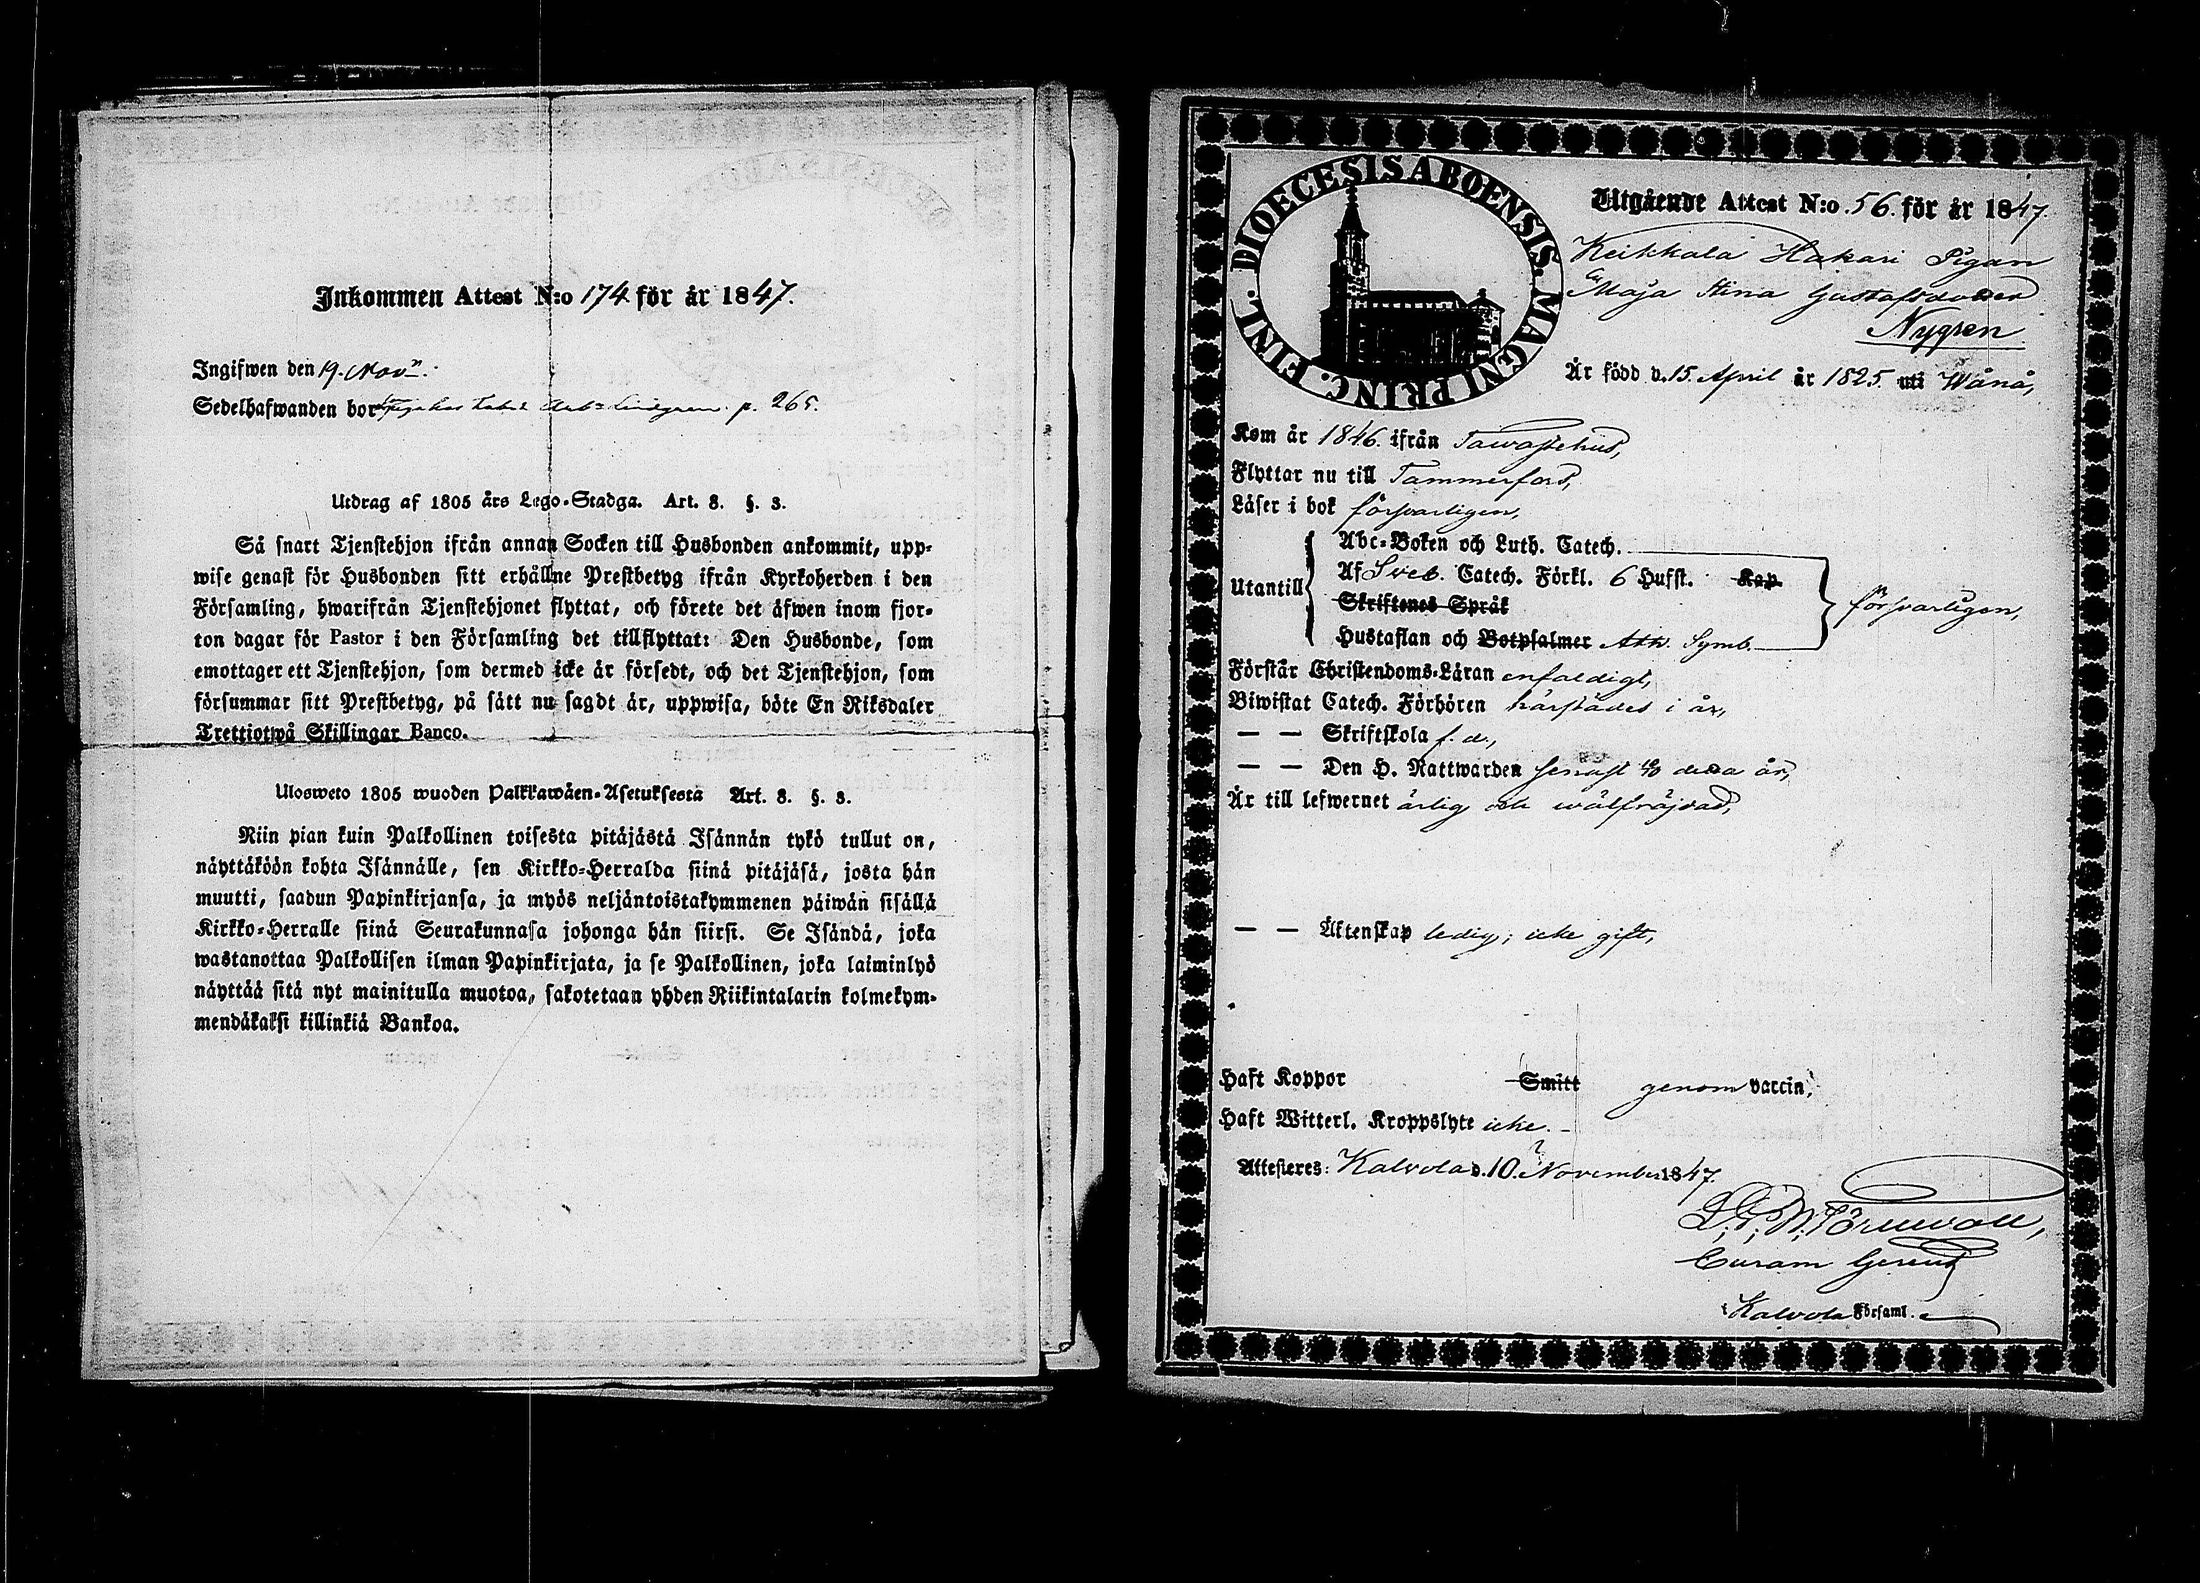 Inkommen Attest N:o 174 för år 1847.
Ingifwen den 19. Nov.
Sedelhafwanden bor Piga hos Lindgren p. 265.
Utdrag af 1805 års Lego-Stadga. Art. 8. §. 3.
Så snart Tjenstehjon ifrån annan Socken till Husbonden ankommit, upp-
wise genast för Husbonden sitt erhållne Prestbetyg ifrån Kyrkoherden i den
Församling, hwarifrån Tjenstehjonet flyttat, och förete det äfwen inom fjor-
ton dagar för Pastor i den Församling det tillflyttat: Den Husbonde, som
emottager ett Tjenstehjon, som dermed icke är försedt, och det Tjenstehjon, som
försummar sitt Prestbetyg, på sätt nu sagdt är, uppwisa, böte En Riksdaler
Trettiotwå Skillingar Banco.
Ulosweto 1805 wuoden Palkkawäen-Asetuksesta Art. 8. §. 3.
Niin pian kuin Palkollinen toisesta pitäjästä Isännän tykö tullut on,
näyttäköön kohta Isännälle, sen Kirkko-Herralda siinä pitäjäsä, josta hän
muutti, saadun Papinkirjansa, ja myös neljäntoistakymmenen päiwän sisällä
Kirkko-Herralle siinä Seurakunnasa johonga hän siirsi. Se Isändä, joka
wastanottaa Palkollisen ilman Papinkirjata, ja se Palkollinen, joka laiminlyö
näyttää sitä nyt mainitulla muotoa, sakotetaan yhden Riikintalarin kolmekym-
mendäkaksi killinkiä Bankoa.
DIOECESIS ABOENSIS. MAGNI PRINC. FINL.
Utgående Attest N:o 56. för år 1847.
Keikkala Hakari Pigan
Maja Stina Gustafsdotter
Nygren
Är född d. 15. April år 1825. uti Wånå,
Kom år 1846. ifrån Tawastehus,
Flyttar nu till Tammerfors,
Läser i bok försvarligen,
Utantill
Abc-Boken och Luth. Catech.
Af Sveb. Catech. Förkl. 6 Hufst. Kap
Skriftenes Språk
Hustaflan och Botpsalmer Ath. Symb.
försvarligen,
Förstår Christendoms-Läran enfaldigt,
Biwistat Catech. Förhören härstädes i år,
— — Skriftskola f. d.,
— — Den H. Nattwarden senast detta år,
Är till lefwernet ärlig och wälfräjdad,
— — Äktenskap ledig; icke gift,
Haft Koppor Smitt genom vaccin,
Haft Witterl. Kroppslyte icke.
Attesteres: Kalvola d. 10. November 1847.
Törnwall,
Curam Gerens
i Kalvola Församl.